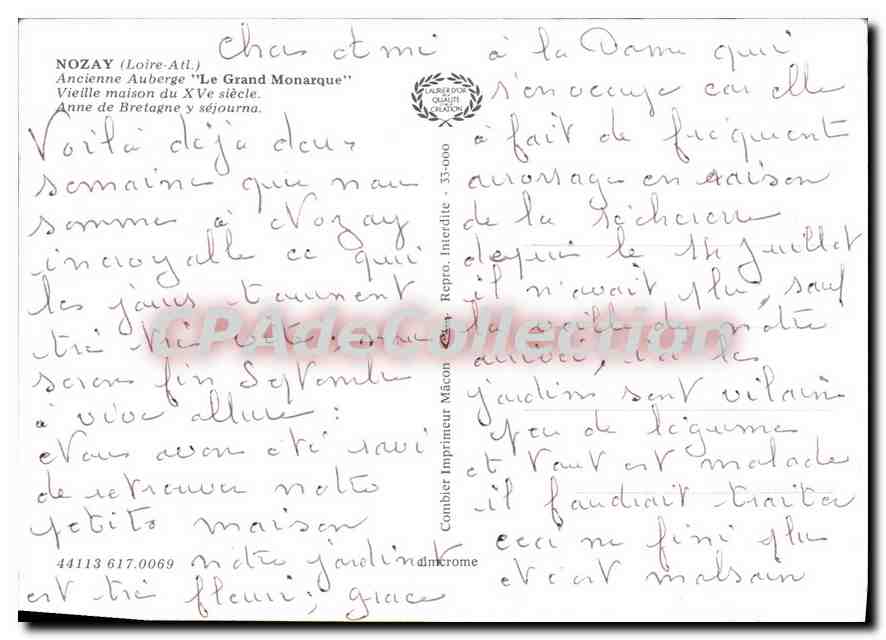 Chers ami
NOZAY (Loire-Atl.)
Ancienne Auberge "Le Grand Monarque"
Vieille maison du XVe siècle.
Anne de Bretagne y séjourna.
LAURIER D'OR
DE LA
QUALITÉ
CREATION
Voilà déjà deux
semaine que nous
somme à Nozay
incroyable ce que
les jours tournent
très très vite, nous
serons fin Septembre
à vive allure :
Nous avons été ravi
de retrouver notre
petite maison
notre jardinet
est très fleuri ; grace
44113 617.0069
Combier Imprimeur Mâcon - Repro. Interdite - 33-000
cimcrome
CPAdeCollection
à la Dame qui
s'en occupe car elle
à fait de fréquent
arrossage en raison
de la sécheresse
depuis le 14 Juillet
il n'avait plu, sauf
la veille de notre
arrivé, ici les
jardins sont vilains
peu de légumes
et tout est malade
il faudrait traiter
ceci ne fini plus
et c'est malsain